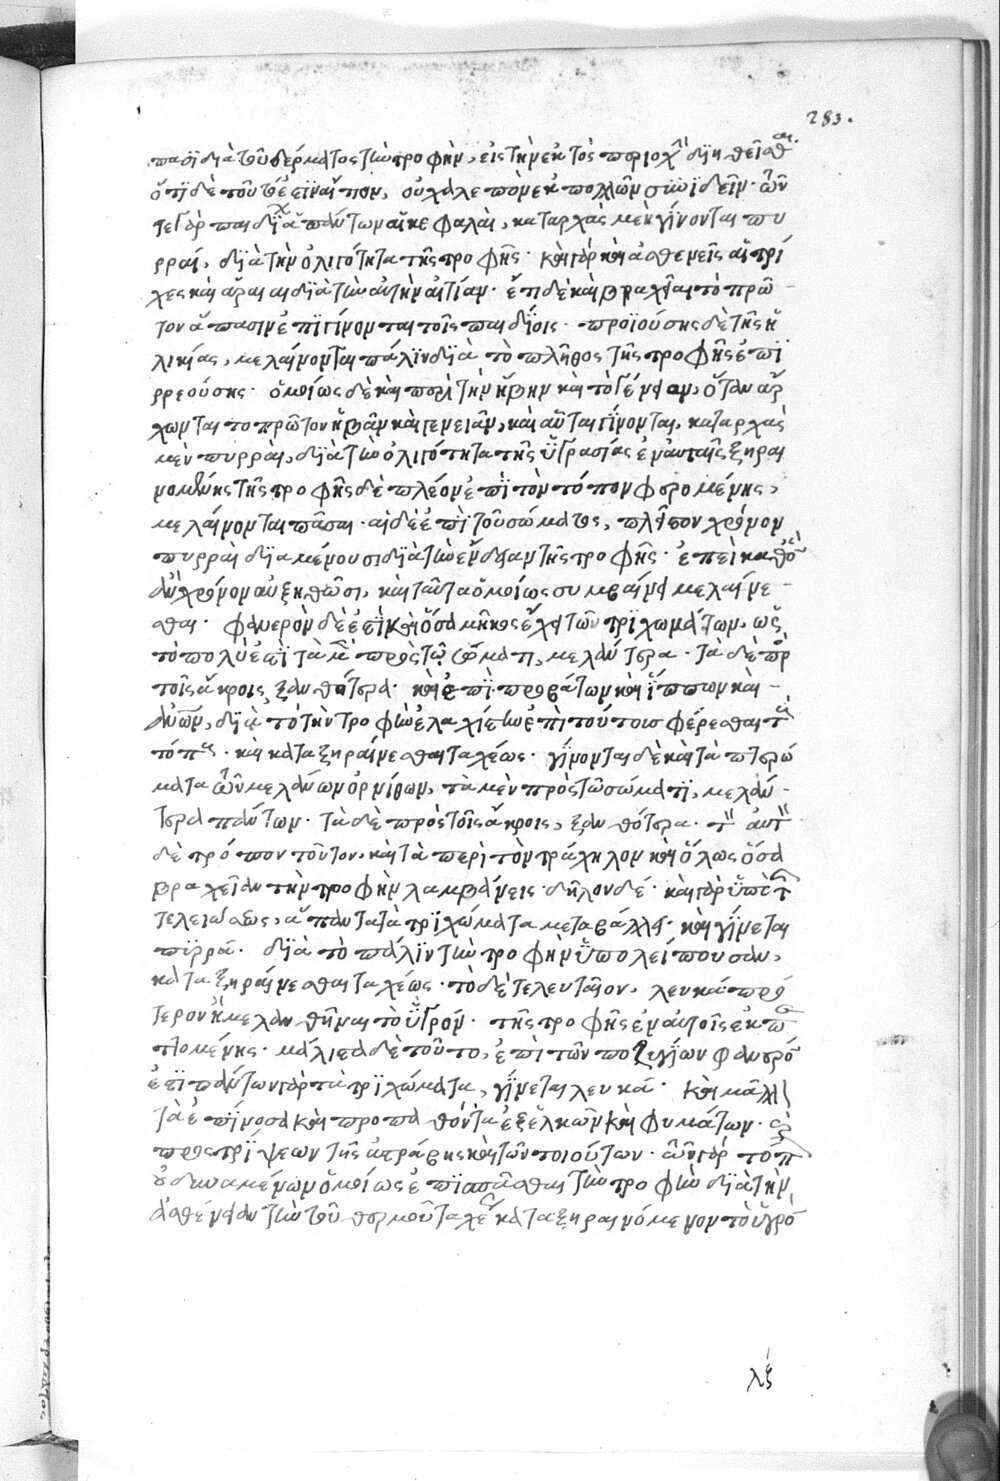 283.
πασι διὰ τοῦ δέρματος τὴν τροφὴν, εἰς τὴν ἐκτὸς περιοχὴν διηθεῖσθαι.
ὅτι δὲ τοῦθ' ὃ εἴπον, οὐ χαλεπὸν ἐκ πολλῶν συνιδεῖν· τῶν
τε γὰρ παιδίων ἁπάντων αἱ κεφαλαὶ, καταρχὰς μὲν γίνονται πυ
ρραὶ, διὰ τὴν ὀλιγότητα τῆς τροφῆς· καὶ γὰρ καὶ ἀσθενεῖς αἱ τρί
χες καὶ ἀραιαὶ διὰ τὴν αὐτὴν αἰτίαν· ἔτι δὲ καὶ βραχεῖαι τὸ πρῶ
τον ἅπασιν ἐπιγίνονται τοῖς παιδίοις· προϊούσης δὲ τῆς ἡ
λικίας, μελαίνονται πάλιν διὰ τὸ πλῆθος τῆς τροφῆς ἐπι
ρρεούσης· ὁμοίως δὲ καὶ περὶ τὴν ἥβην καὶ τὸ γένειον, ὅταν ἄρ
χωνται τὸ πρῶτον ἡβᾶν καὶ γενειᾶν, καὶ αὗται γίνονται, καταρχὰς
μὲν πυρραὶ, διὰ τὴν ὀλιγότητα τῆς ὑγρασίας ἐν αὐταῖς ξηραι
νομένης τῆς τροφῆς δὲ πλέον ἐπὶ τὸν τόπον φερομένης,
μελαίνονται πᾶσαι· αἱ δὲ ἐπὶ τοῦ σώματος, πλεῖστον χρόνον
πυρραὶ διαμένουσι διὰ τὴν ἔνδειαν τῆς τροφῆς· ἐπεὶ καθ' ὃν
ἂν χρόνον αὐξηθῶσι, καὶ ταῦτα ὁμοίως συμβαίνει μελαίνε
σθαι· φανερὸν δὲ ἐστὶ καὶ ὅσα μῆκος ἔχει τῶν τριχωμάτων, ὡς
τὸ πολὺ ἐστὶ τὰ μὲν πρὸς τῷ σώματι, μελάντερα· τὰ δὲ πρὸς
τοῖς ἄκροις ξανθότερα· καὶ ἐπὶ προβάτων καὶ ἵππων καὶ
ἀνῶν, διὰ τὸ τὴν τροφὴν ἐλαχίστην ἐπὶ τούτοις φέρεσθαι τοὺς
τόπους· καὶ καταξηραίνεσθαι ταχέως· γίνονται δὲ καὶ τὰ πτερώ
ματα τῶν μελάνων ὀρνίθων, τὰ μὲν πρὸς τῷ σώματι, μελάν
τερα πάντων· τὰ δὲ πρὸς τοῖς ἄκροις, ξανθότερα· τὸν αὐτὸν
δὲ τρόπον τοῦτον, καὶ τὰ περὶ τὸν τράχηλον καὶ ὅλως ὅσα
βραχεῖαν τὴν τροφὴν λαμβάνεις· δῆλον δέ· καὶ γὰρ ὑπὸ τῆς
τελειώσεως, ἅπαντα τὰ τριχώματα μεταβάλλει· καὶ γίνεται
πυρρά· διὰ τὸ πάλιν τὴν τροφὴν ὑπολείπουσαν,
καταξηραίνεσθαι ταχέως· τὸ δὲ τελευταῖον, λευκὰ πρό
τερον ἢ μελανθῆναι τὸ ὑγρόν· τῆς τροφῆς ἐν αὐτοῖς ἐκπε
πτομένης· μάλιστα δὲ τοῦτο, ἐπὶ τῶν ποζυγίων φανερόν
ἐπὶ πάντων γὰρ τὰ τριχώματα, γίνεται λευκά· καὶ μᾶλλον
τὰ ἐπίνοσα καὶ προπαθόντα ἐξ ἑλκῶν καὶ φυμάτων· καὶ
προστρίψεων τῆς ἀστράβης καὶ τῶν τοιούτων· τῶν γὰρ τόπων
οὐ δυναμένων ὁμοίως ἐπισπᾶσθαι τὴν τροφὴν διὰ τὴν
ἀσθένειαν τὴν τοῦ θερμοῦ ταχέως καταξηραινόμενον τὸ ὑγρὸν
λξ